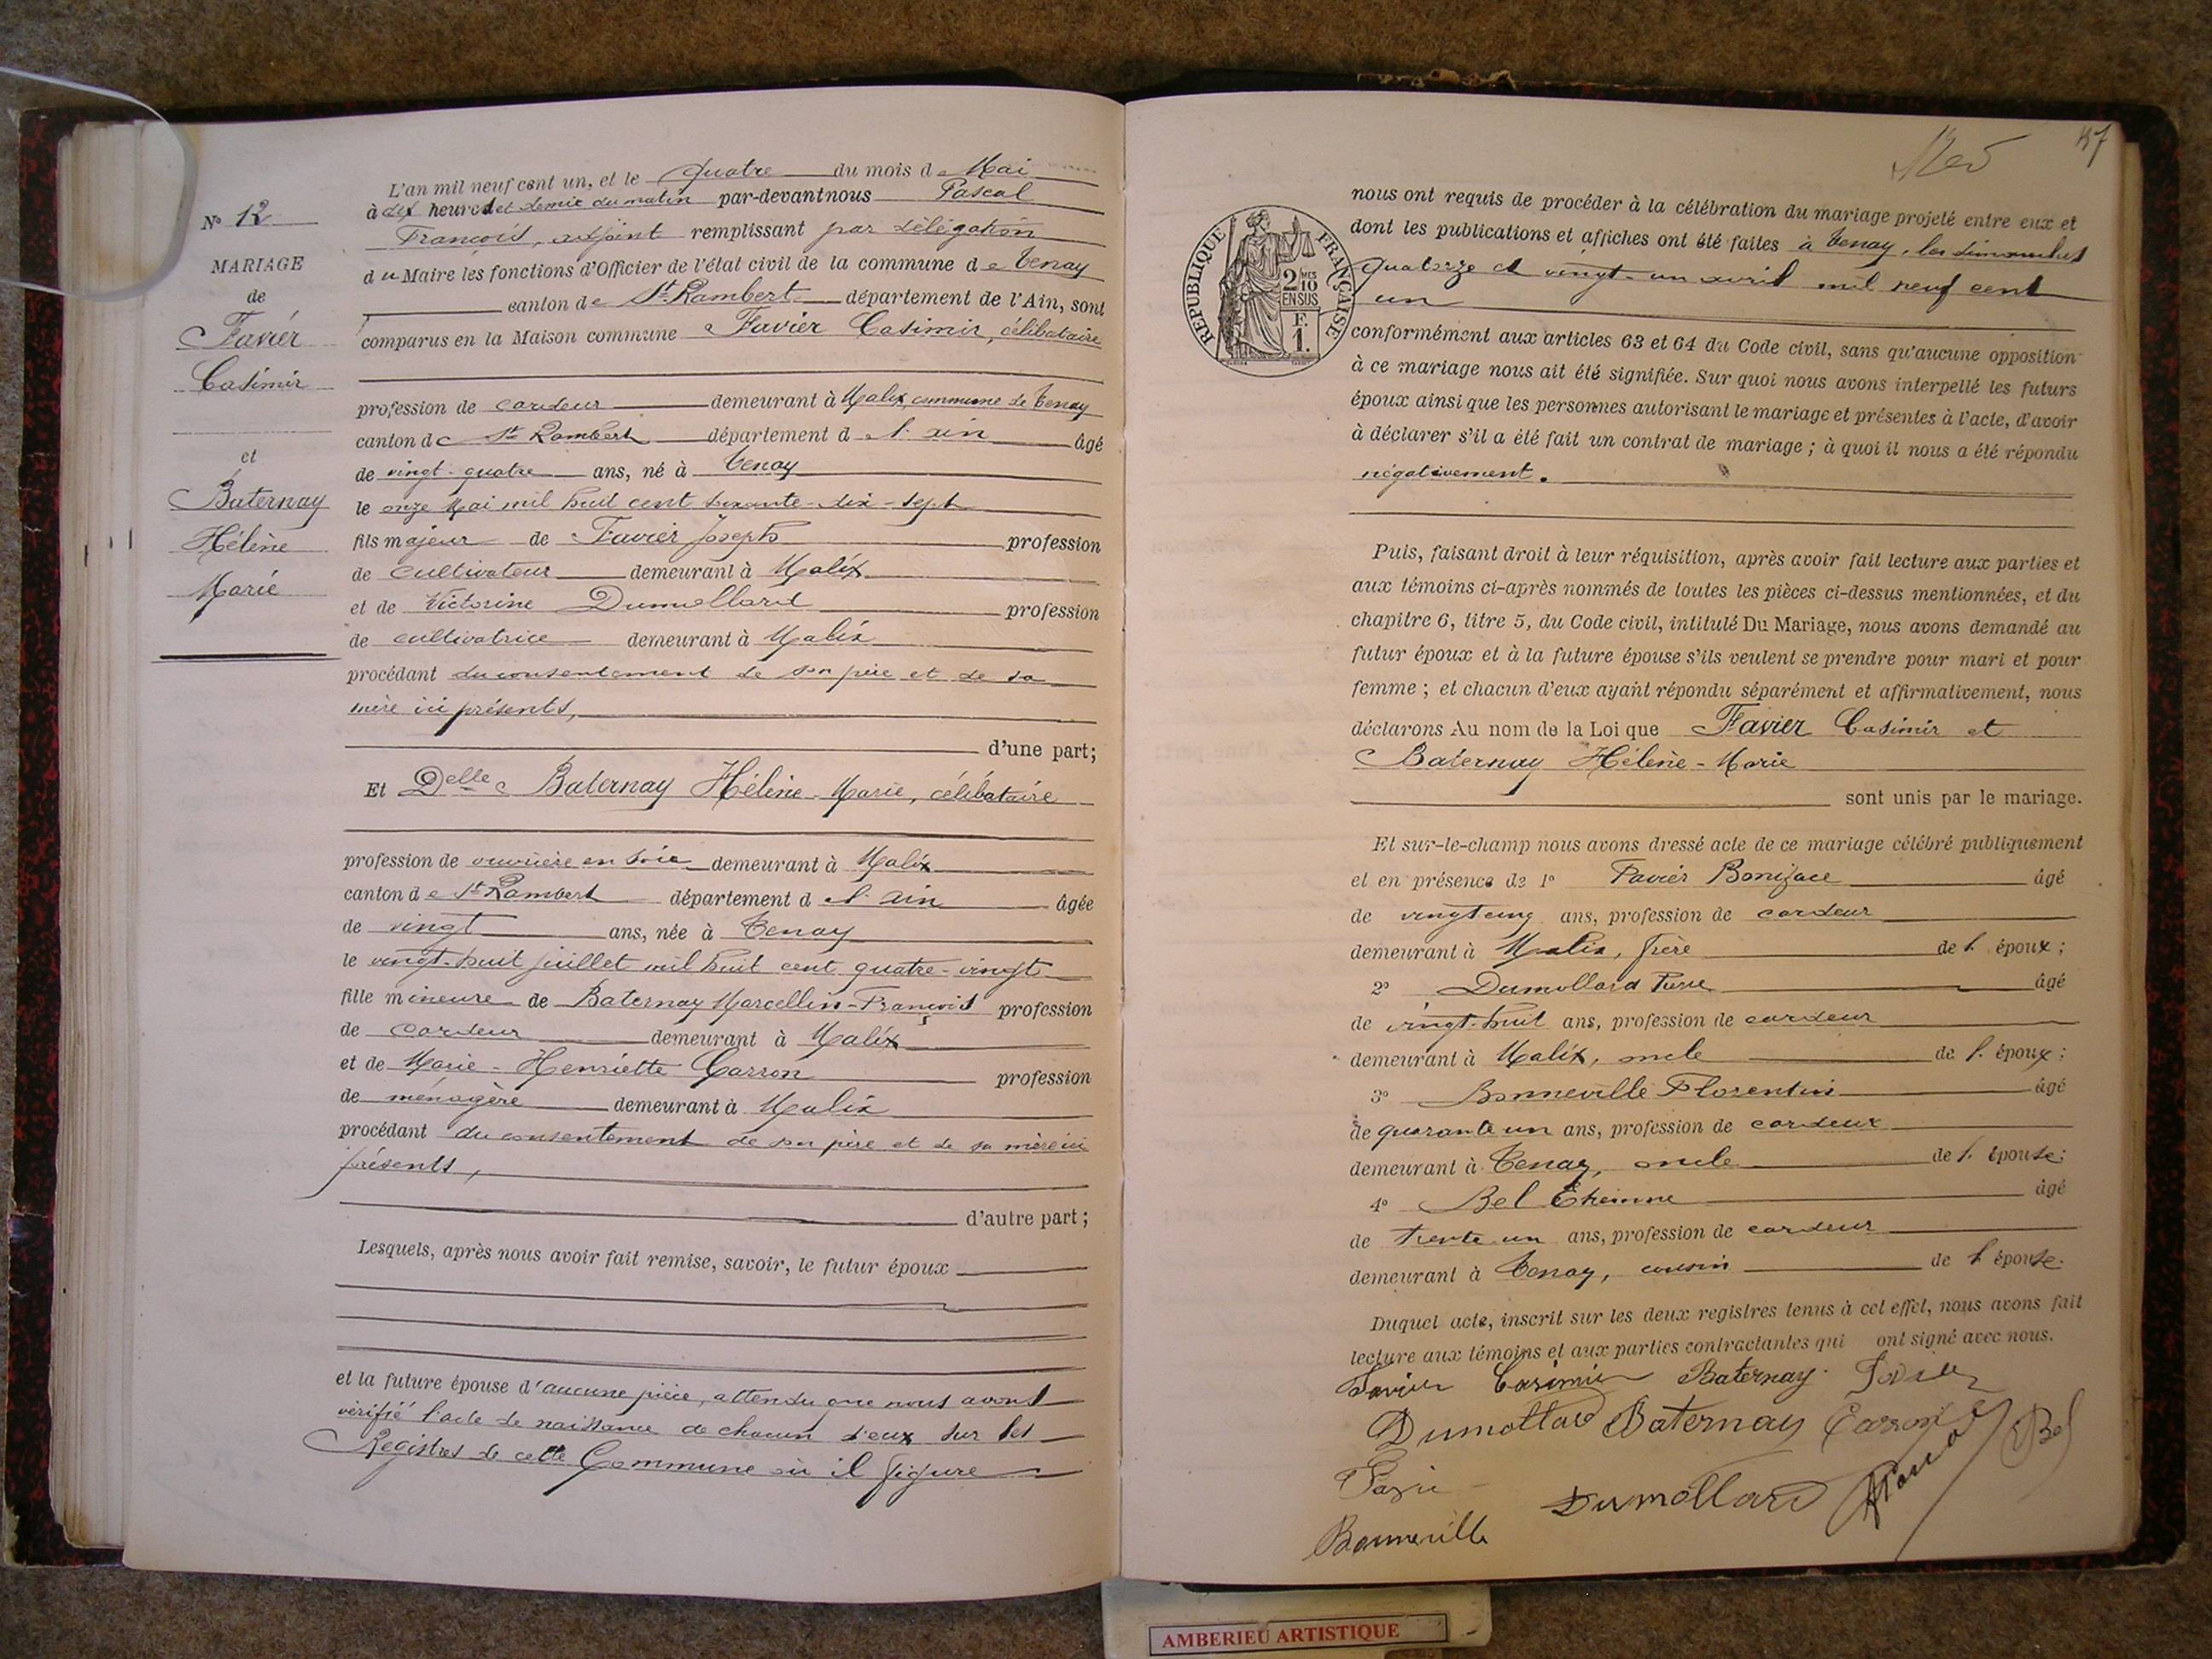 N° 12
MARIAGE
de
Favier
Casimir
et
Baternay
Hélène
Marie
L'an mil neuf cent un, et le quatre du mois de Mai
à dix heures et demie du matin par-devant nous Pascal
François, adjoint remplissant par délégation
du Maire les fonctions d'Officier de l'état civil de la commune de Tenay
canton de St Rambert département de l'Ain, sont
comparus en la Maison commune Favier Casimir, célibataire
profession de cardeur demeurant à Malix, commune de Tenay
canton de St Rambert département de l'ain âgé
de vingt-quatre ans, né à Tenay
le onze Mai mil huit cent soixante-dix-sept
fils majeur de Favier Joseph profession
de cultivateur demeurant à Malix
et de Victorine Dumollard profession
de cultivatrice demeurant à Malix
procédant du consentement de son père et de sa
mère ici présents,
d'une part;
Et Delle Baternay Hélène-Marie, célibataire
profession de ouvrière en soie demeurant à Malix
canton de St Rambert département de l'ain âgée
de vingt ans, née à Tenay
le vingt-huit juillet mil huit cent quatre-vingt
fille mineure de Baternay Marcellin-François profession
de cardeur demeurant à Malix
et de Marie-Henriette Carron profession
de ménagère demeurant à Malix
procédant du consentement de son père et de sa mère ici
présents,
d'autre part;
Lesquels, après nous avoir fait remise, savoir, le futur époux
et la future épouse d'aucune pièce, attendu que nous avons
vérifié l'acte de naissance de chacun d'eux sur les
Registres de cette Commune où il figure
57
nous ont requis de procéder à la célébration du mariage projeté entre eux et
dont les publications et affiches ont été faites à Tenay, les dimanches
quatorze et vingt-un avril mil neuf cent
un
RÉPUBLIQUE FRANÇAISE
2 MES
10
EN SUS
F.
1.
conformément aux articles 63 et 64 du Code civil, sans qu'aucune opposition
à ce mariage nous ait été signifiée. Sur quoi nous avons interpellé les futurs
époux ainsi que les personnes autorisant le mariage et présentes à l'acte, d'avoir
à déclarer s'il a été fait un contrat de mariage; à quoi il nous a été répondu
négativement.
Puis, faisant droit à leur réquisition, après avoir fait lecture aux parties et
aux témoins ci-après nommés de toutes les pièces ci-dessus mentionnées, et du
chapitre 6, titre 5, du Code civil, intitulé Du Mariage, nous avons demandé au
futur époux et à la future épouse s'ils veulent se prendre pour mari et pour
femme; et chacun d'eux ayant répondu séparément et affirmativement, nous
déclarons Au nom de la Loi que Favier Casimir et
Baternay Hélène-Marie
sont unis par le mariage.
Et sur-le-champ nous avons dressé acte de ce mariage célébré publiquement
et en présence de 1° Favier Boniface âgé
de vingt cinq ans, profession de cardeur
demeurant à Malix, frère de l' époux;
2° Dumollard Pierre âgé
de vingt-huit ans, profession de cardeur
demeurant à Malix, oncle de l' époux;
3° Bonneville Florentin âgé
de quarante un ans, profession de cardeur
demeurant à Tenay, oncle de l' épouse;
4° Bel Etienne âgé
de trente un ans, profession de cardeur
demeurant à Tenay, cousin de l' épouse.
Duquel acte, inscrit sur les deux registres tenus à cet effet, nous avons fait
lecture aux témoins et aux parties contractantes qui ont signé avec nous.
Favier Casimir Baternay
Dumollard Baternay Carron Bel
Dumollard
Bonneville
AMBERIEU ARTISTIQUE